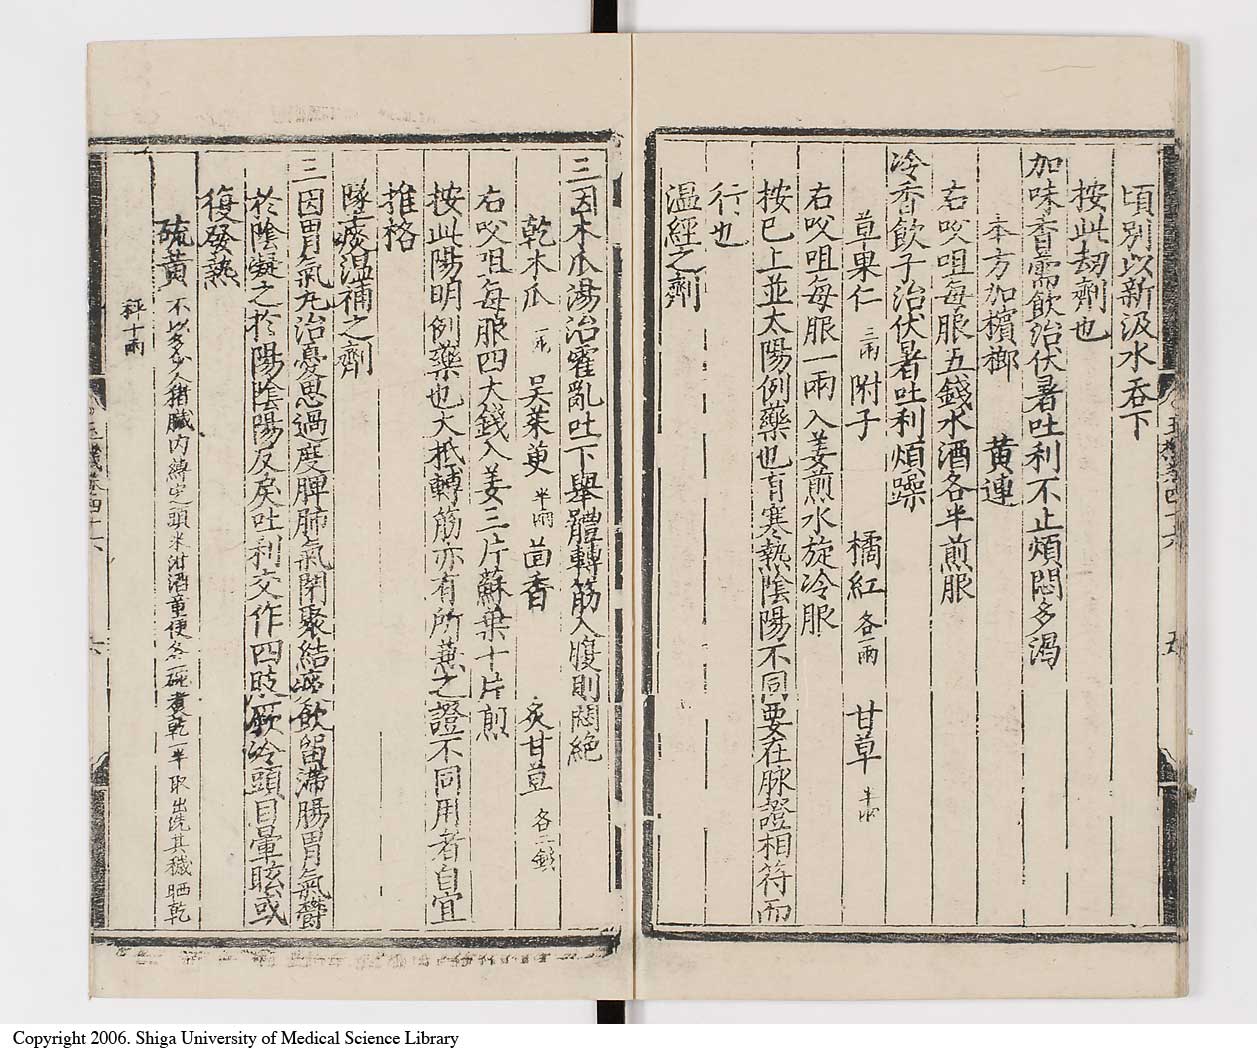 頃別以新汲水吞下
按此劫劑也
加味香薷飲治伏暑吐利不止煩悶多渴
本方加檳榔 黃連
右㕮咀每服五錢水酒各半煎服
冷香飲子治伏暑吐利煩躁
草果仁 三兩 附子 橘紅 各兩 甘草 半兩
右㕮咀每服一兩入姜煎水旋冷服
按已上並太陽例藥也有寒熱陰陽不同要在脉證相符而
行也
温經之劑
三因木瓜湯治霍亂吐下舉體轉筋入腹則悶絶
乾木瓜 一兩 吴茱萸 半兩 茴香 炙甘草 各二錢
右㕮咀每服四大錢入姜三片蘇葉十片煎
按此陽明例藥也大抵轉筋亦有所蒸之證不同用者自宜
推格
墜痰温補之劑
三因胃氣丸治憂思過度脾肺氣閉聚結痰飲留滯腸胃氣欝
於陰凝之於陽陰陽反戾吐利交作四肢厥冷頭目暈眩或
復發熱
硫黃 不以多少入猪臟内縛定頭米泔酒童便各一碗煮乾一半取出洗其穢晒乾
秤十兩
卷四十六
五
六
Copyright 2006. Shiga University of Medical Science Library